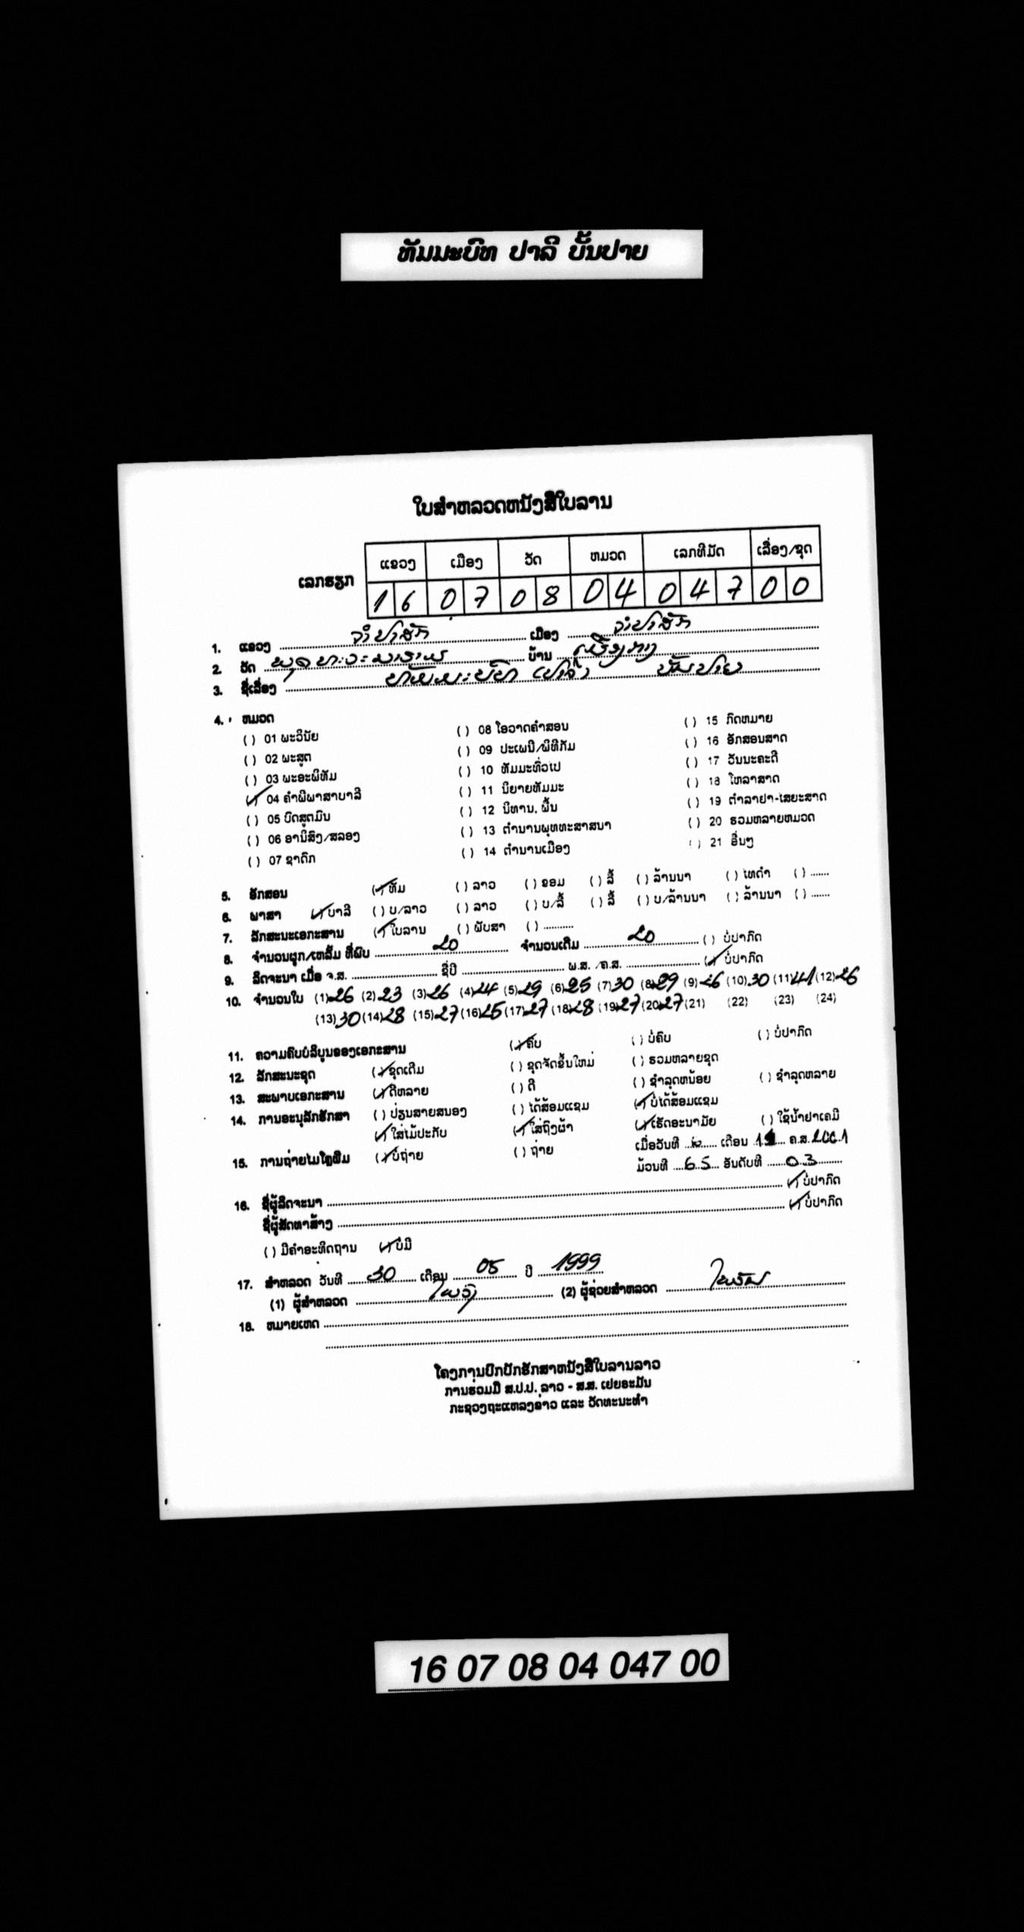 ທັມມະບົທ ປາລິ ບັ້ນປາຍ
ໃບສຳຫລວດຫນັງສືໃບລານ
ເລກຮຽກ ແຂວງ ເມືອງ ວັດ ຫມວດ ເລກທີມັດ ເລື່ອງ/ຊຸດ
1 6 0 7 0 8 0 4 0 4 7 0 0
1. ແຂວງ ຈຳປາສັກ ເມືອງ ຈຳປາສັກ
2. ວັດ ບ້ານ
3. ຊື່ເລື່ອງ ທັມມະບົທ (ປາລິ) ບັ້ນປາຍ
4. ຫມວດ
( ) 01 ພະວິນັຍ ( ) 08 ໂອວາດຄຳສອນ ( ) 15 ກົດຫມາຍ
( ) 02 ພະສູດ ( ) 09 ປະເພນີ/ພິທີກັມ ( ) 16 ອັກສອນສາດ
( ) 03 ພະອະພິທັມ ( ) 10 ທັມມະທົ່ວໄປ ( ) 17 ວັນນະຄະດີ
(✓) 04 ຄຳພີພາສາບາລີ ( ) 11 ນິຍາຍທັມມະ ( ) 18 ໂຫລາສາດ
( ) 05 ບົດສູດມົນ ( ) 12 ນິທານ, ພື້ນ ( ) 19 ຕຳລາຢາ-ໄສຍະສາດ
( ) 06 ອານິສົງ/ສລອງ ( ) 13 ຕຳນານພຸທທະສາສນາ ( ) 20 ຮວມຫລາຍຫມວດ
( ) 07 ຊາດົກ ( ) 14 ຕຳນານເມືອງ ( ) 21 ອື່ນໆ
5. ອັກສອນ (✓) ທັມ ( ) ລາວ ( ) ຂອມ ( ) ລື້ ( ) ລ້ານນາ ( ) ໄທດຳ ( ) ......
6. ພາສາ (✓) ບາລີ ( ) ບ/ລາວ ( ) ລາວ ( ) ບ/ລື້ ( ) ລື້ ( ) ບ/ລ້ານນາ ( ) ລ້ານນາ ( ) ......
7. ລັກສະນະເອກະສານ (✓) ໃບລານ ( ) ພັບສາ ( ) ..........
8. ຈຳນວນຜູກ/ເຫລັ້ມ ທີ່ພົບ 20 ຈຳນວນເຕີມ 20 ( ) ບໍ່ປາກົດ
9. ລິດຈະນາ ເມື່ອ ຈ.ສ. ຊື່ປີ ພ.ສ. /ຄ.ສ. (✓) ບໍ່ປາກົດ
10. ຈຳນວນໃບ (1) 26 (2) 23 (3) 26 (4) 24 (5) 29 (6) 25 (7) 30 (8) 29 (9) 26 (10) 30 (11) 41 (12) 26
(13) 30 (14) 28 (15) 27 (16) 25 (17) 27 (18) 28 (19) 27 (20) 27 (21) (22) (23) (24)
11. ຄວາມຄົບບໍລິບູນຂອງເອກະສານ (✓) ຄົບ ( ) ບໍ່ຄົບ ( ) ບໍ່ປາກົດ
12. ລັກສະນະຊຸດ (✓) ຊຸດເດີມ ( ) ຊຸດຈັດຂຶ້ນໃຫມ່ ( ) ຮວມຫລາຍຊຸດ
13. ສະພາບເອກະສານ (✓) ດີຫລາຍ ( ) ດີ ( ) ຊຳລຸດຫນ້ອຍ ( ) ຊຳລຸດຫລາຍ
14. ການອະນຸລັກຮັກສາ ( ) ປ່ຽນສາຍສນອງ ( ) ໄດ້ສ້ອມແຊມ (✓) ບໍ່ໄດ້ສ້ອມແຊມ
(✓) ໃສ່ໄມ້ປະກັບ (✓) ໃສ່ຖົງຜ້າ (✓) ເຮັດອະນາມັຍ ( ) ໃຊ້ນ້ຳຢາເຄມີ
15. ການຖ່າຍໄມໂຄຼຟິມ (✓) ບໍ່ຖ່າຍ ( ) ຖ່າຍ ເມື່ອວັນທີ ເດືອນ ຄ.ສ. 2001
ມ້ວນທີ 65 ອັນດັບທີ 03
16. ຊື່ຜູ້ລິດຈະນາ (✓) ບໍ່ປາກົດ
ຊື່ຜູ້ສັດທາສ້າງ (✓) ບໍ່ປາກົດ
( ) ມີຄຳອະທິດຖານ (✓) ບໍ່ມີ
17. ສຳຫລວດ ວັນທີ 30 ເດືອນ 05 ປີ 1999
(1) ຜູ້ສຳຫລວດ (2) ຜູ້ຊ່ວຍສຳຫລວດ
18. ຫມາຍເຫດ
ໂຄງການປົກປັກຮັກສາຫນັງສືໃບລານລາວ
ການຮ່ວມມື ສ.ປ.ປ. ລາວ - ສ.ສ. ເຢຍຣະມັນ
ກະຊວງຖະແຫລງຂ່າວ ແລະ ວັດທະນະທຳ
16 07 08 04 047 00